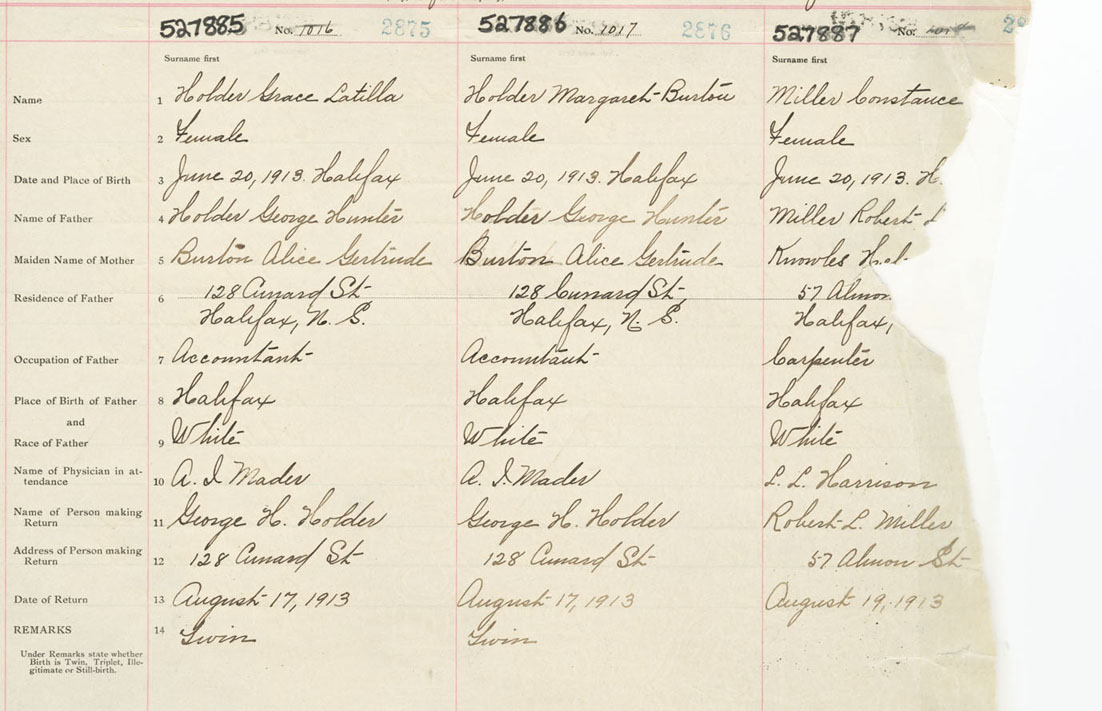 527885 No. 1016 2875 527886 No. 1017 2876 527887 No.
Surname first Surname first Surname first
Name 1 Holder Grace Latilla Holder Margaret Burton Miller Constance
Sex 2 Female Female Female
Date and Place of Birth 3 June 20, 1913. Halifax June 20, 1913. Halifax June 20, 1913. H
Name of Father 4 Holder George Hunter Holder George Hunter Miller Robert L
Maiden Name of Mother 5 Burton Alice Gertrude Burton Alice Gertrude Knowles
Residence of Father 6 128 Cunard St 128 Cunard St, 57 Almon
Halifax, N. S. Halifax, N. S. Halifax,
Occupation of Father 7 Accountant Accountant Carpenter
Place of Birth of Father 8 Halifax Halifax Halifax
and
Race of Father 9 White White White
Name of Physician in at-
tendance 10 A. I Mader A. I. Mader L. L. Harrison
Name of Person making
Return 11 George H. Holder George H. Holder Robert L. Miller
Address of Person making
Return 12 128 Cunard St 128 Cunard St 57 Almon St
Date of Return 13 August 17, 1913 August 17, 1913 August 19, 1913
REMARKS 14 Twin Twin
Under Remarks state whether
Birth is Twin, Triplet, Ille-
gitimate or Still-birth.